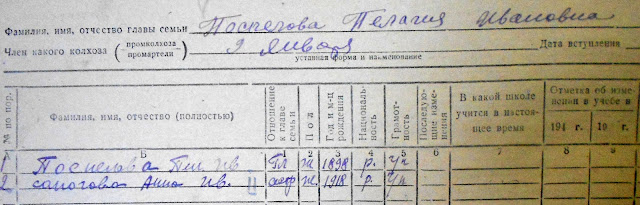 Фамилия, имя, отчество главы семьи Поспелова Пелагия Ивановна
Член какого колхоза (промколхоза промартели) 9 Января Дата вступления
уставная форма и наименование
№ по пор. Фамилия, имя, отчество (полностью) Отношение к главе семьи Пол Год и м-ц рождения Национальность Грамотность Последующие изменения В какой школе учится в настоящее время Отметка об изменении в учебе в
194 г. 19 г.
Б 1 2 3 4 5 6 7 8 9
1 Поспелова Пел. Ив. Гл ж 1898 р.
2 Анна Ив. ж. 1918 р.